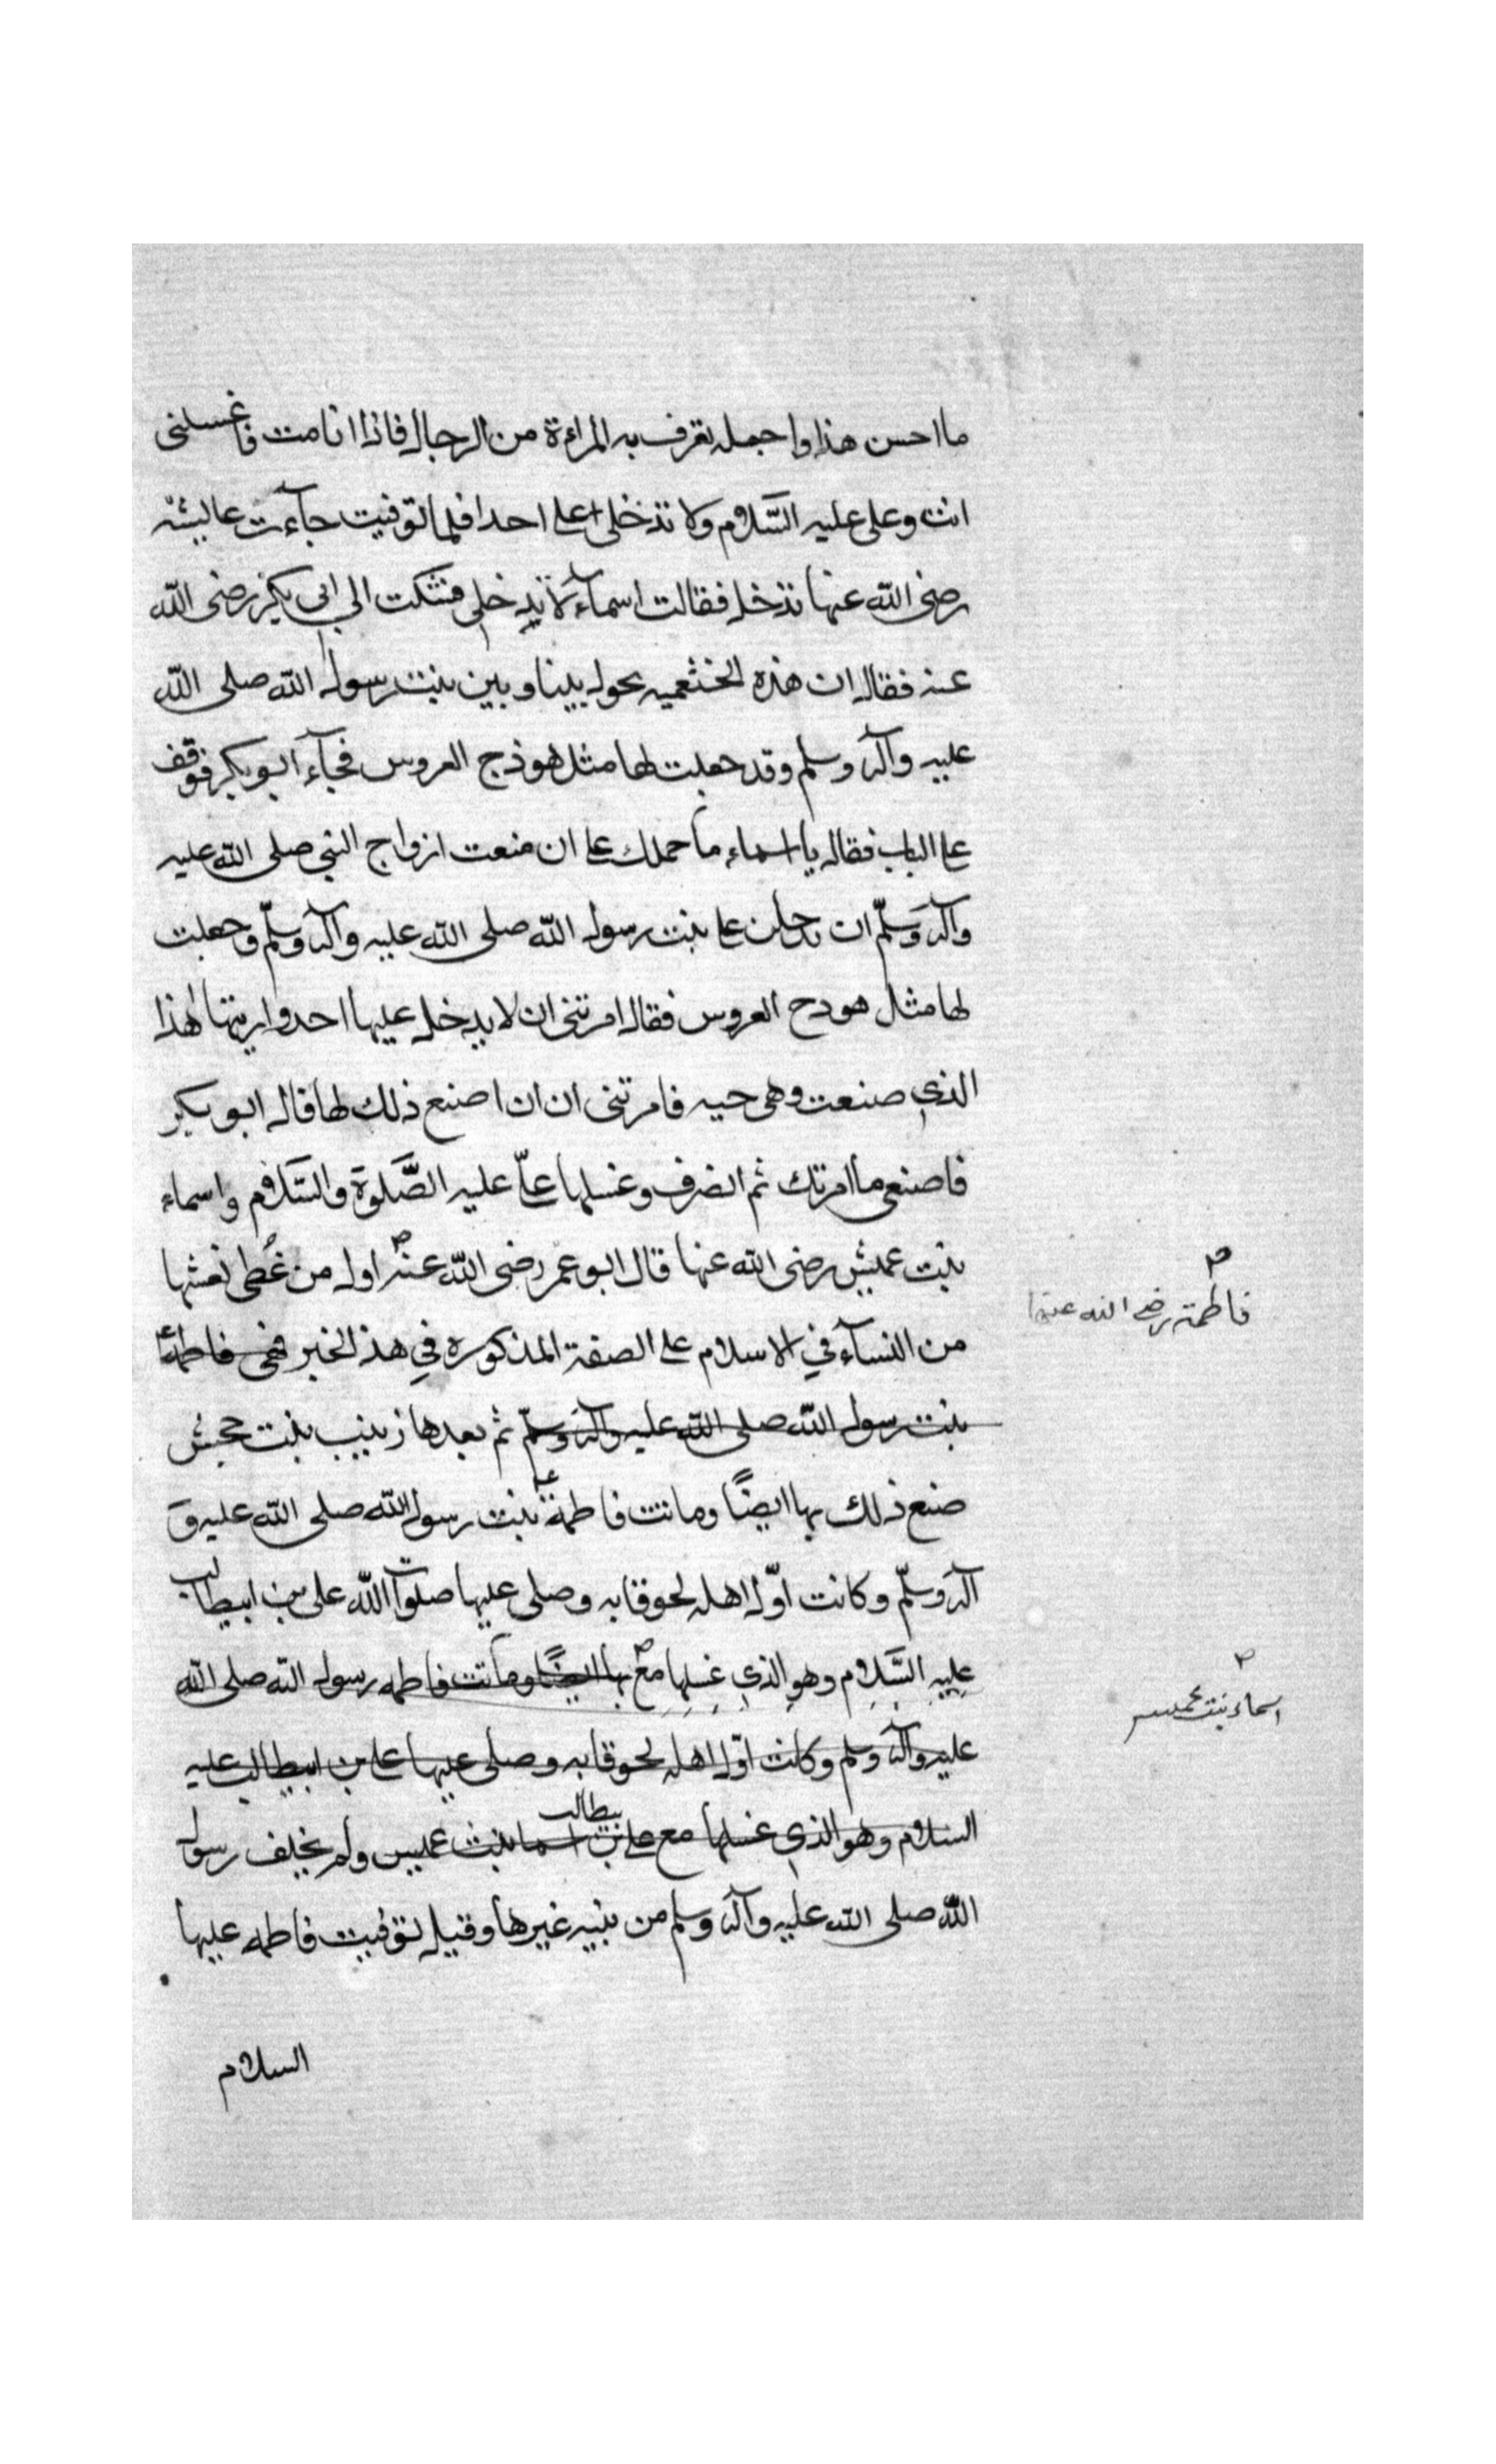 ما احسن هذا واجمله تعرف به المراءة من الرجال فاذا انا مت فاغسلنى
انت وعلى عليه السّلام ولا تدخلى على احدا فلما توفيت جآءت عايشه
رضى الله عنها تدخل فقالت اسمآء لا تدخلى فشكت الى ابى بكر رضى الله
عنه فقال ان هذه الخثعميه تحول بيننا وبين بنت رسول الله صلى الله
عليه وآله وسلم وقد جعلت لها مثل هوذج العروس فجآء ابو بكر فوقف
على الباب فقال يا اسماء ما حملك على ان منعت ازواج النبى صلى الله عليه
وآله وسلّم ان يدخلن على بنت رسول الله صلى الله عليه وآله وسلّم وجعلت
لها مثل هودج العروس فقال امرتنى ان لا يدخل عليها احد واريتها هذا
الذي صنعت وهى حيه فامرتنى ان ان اصنع ذلك لها قال ابو بكر
فاصنعى ما امرتك ثم انصرف وغسلها علىّ عليه الصّلوة والسّلام واسماء
بنت عميس رضى الله عنها قال ابو عمر رضى الله عنه اول من غُطى نعشها
من النسآء في الاسلام على الصفة المذكوره في هذ الخبر فهى فاطمة
بنت رسول الله صلى الله عليه وآله وسلّم ثم بعدها زينب بنت جحش
صنع ذلك بها ايضًا وماتت فاطمة بنت رسول الله صلى الله عليه وَ
آله وسلّم وكانت اوّل اهله لحوقا به وصلى عليها صلوات الله على بن ابيطالب
عليه السَّلام وهو الذي غسلها مع بها ايضًا وماتت فاطمه رسول الله صلى الله
عليه وآله وسلم وكانت اوّل اهله لحوقا به وصلى عليها على بن ابيطالب عليه
السلام وهو الذي غسلها مع على بن بيطالب اسما بنت عميس ولم يخلف رسول
الله صلى الله عليه وآله وسلم من بنيه غيرها وقيل توفيت فاطمه عليها
السلام
فاطمة رضى الله عنها
اسماء بنت عميس